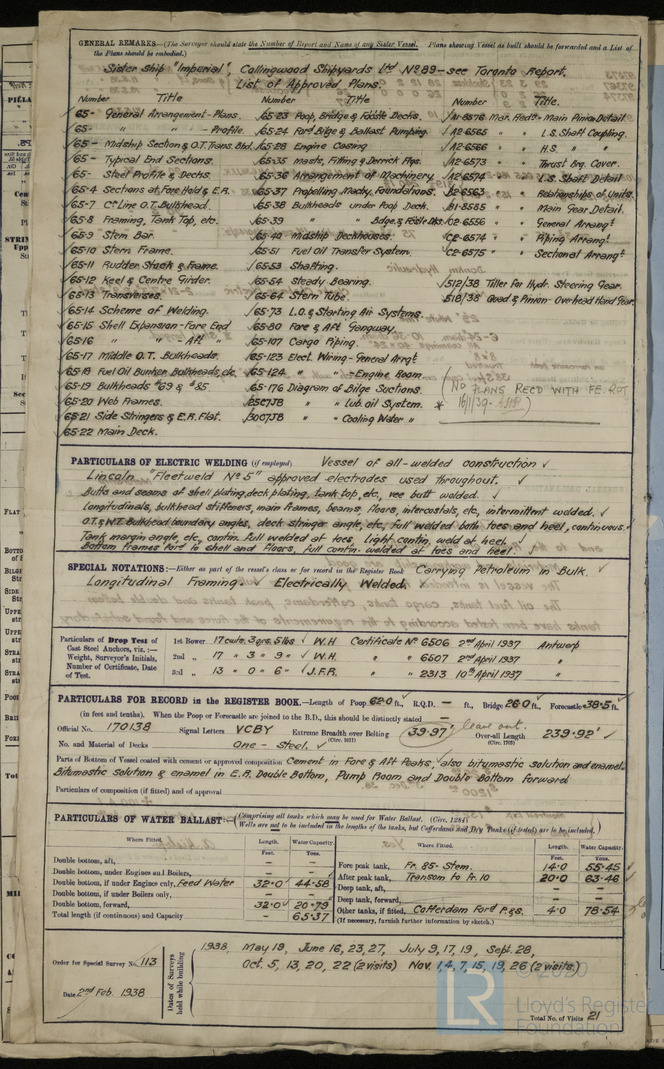 GENERAL REMARKS.—(The Surveyor should state the Number of Report and Name of any Sister Vessel. Plans showing Vessel as built should be forwarded and a List of
the Plans should be embodied.)
Sister Ship "Imperial", Collingwood Shipyards Ltd No 89 - see Toronto Report.
List of Approved Plans.
Number Title Number Title Number Title.
65- General Arrangement - Plans. 65-23 Poop, Bridge & Fo'dle Decks. A1-8576 Main Pinion Detail
65- " " - Profile. 65-24 Ford Bilge & Ballast Pumping. A2-6565 " " L.S. Shaft Coupling.
65- Midship Section & O.T. Trans. Bhd. 65-28 Engine Casing A2-6566 " " H.S. " "
65- Typical End Sections. 65-35 Masts, Fitting & Derrick Ftgs. A2-6573 " " Thrust Brg. Cover.
65- Steel Profile & Decks. 65-36 Arrangement of Machinery. A2-6574 " " L.S. Shaft Detail
65-4 Sections at Fore Hold & E.R. 65-37 Propelling Machy. Foundations. B2-6563 " " Relationships of Units.
65-7 C⁺ Line O.T. Bulkhead. 65-38 Bulkheads under Poop Deck. B1-8585 " " Main Gear Detail.
65-8 Framing, Tank Top, etc. 65-39 " " Bdge. & Fo'dle Dks. C2-6556 " " General Arrangt
65-9 Stem Bar. 65-40 Midship Deckhouses. C2-6574 " " Piping Arrangt
65-10 Stern Frame. 65-51 Fuel Oil Transfer System. C2-6575 " " Sectional Arrangt
65-11 Rudder Stock & Frame. 65-53 Shafting.
65-12 Keel & Centre Girder. 65-54 Steady Bearing. 512/38 Tiller for Hydr. Steering Gear.
65-13 Transverses. 65-64 Stern Tube. 518/38 Quad & Pinion - Overhead Hand Gear.
65-14 Scheme of Welding. 65-73 L.O. & Starting Air Systems.
65-15 Shell Expansion - Fore End 65-80 Fore & Aft Gangway.
65-16 " " Aft " 65-107 Cargo Piping.
65-17 Middle O.T. Bulkheads. 65-123 Elect. Wiring - General Arrgt
65-18 Fuel Oil Bunker Bulkheads, etc. 65-124 " " - Engine Room
65-19 Bulkheads #69 & #85 65-176 Diagram of Bilge Suctions. (NO PLANS REC'D WITH F.E. RPT
65-20 Web Frames. 25C7JB " " Lub. oil System. * 16/1/39 -
65-21 Side Stringers & E.R. Flat. 30C7JB " " Cooling Water "
65-22 Main Deck.
PARTICULARS OF ELECTRIC WELDING (if employed) Vessel of all-welded construction
Lincoln "Fleetweld No 5" approved electrodes used throughout.
Butts and seams of shell plating, deck plating, tank top, etc, vee butt welded.
Longitudinals, bulkhead stiffeners, main frames, beams, floors, intercostals, etc, intermittent welded.
O.T. & W.T. Bulkhead boundary angles, deck stringer angle, etc, full welded both toes and heel, continuous.
Tank margin angle, etc, contin. full welded at toes, Light contin. weld at heel.
Bottom frames Port to shell and floors, full contin. welded at toes and heel.
SPECIAL NOTATIONS:—Either as part of the vessel's class or for record in the Register Book Carrying Petroleum in Bulk.
Longitudinal Framing. Electrically Welded.
Particulars of Drop Test of 1st Bower 17 cwts. 3 qrs. 5 lbs W.H. Certificate No 6506 2nd April 1937 Antwerp
Cast Steel Anchors, viz.:—
Weight, Surveyor's Initials, 2nd " 17 " 3 " 9 " W.H. " " 6507 2nd April 1937 "
Number of Certificate, Date
of Test. 3rd " 13 " 0 " 6 " J.F.R. " " 2313 10th April 1937 "
PARTICULARS FOR RECORD in the REGISTER BOOK.—Length of Poop 62.0 ft., R.Q.D. — ft., Bridge 26.0 ft., Forecastle 38.5 ft.
(in feet and tenths). When the Poop or Forecastle are joined to the B.D., this should be distinctly stated —
Official No. 170138 Signal Letters VCBY Extreme Breadth over Belting 39.97' leave out. Over-all Length 239.92'
(Circ. 1611) (Circ. 1703)
No. and Material of Decks One - Steel.
Parts of Bottom of Vessel coated with cement or approved composition Cement in Fore & Aft Peaks, also bitumastic solution and enamel.
Bitumastic solution & enamel in E.R. Double Bottom, Pump Room and Double Bottom forward
Particulars of composition (if fitted) and of approval
PARTICULARS OF WATER BALLAST:—(Comprising all tanks which may be used for Water Ballast. (Circ. 1284)
Wells are not to be included in the lengths of the tanks, but Cofferdams and Dry Tanks (if tested) are to be included.)
Where Fitted. Length. Water Capacity. Where Fitted. Length. Water Capacity.
Feet. Tons. Feet. Tons.
Double bottom, aft, — — Fore peak tank, Fr. 85 - Stem. 14.0 55.45
Double bottom, under Engines and Boilers, — — After peak tank, Transom to Fr. 10 20.0 63.46
Double bottom, if under Engines only, Feed Water 32.0 44.58 Deep tank, aft, — —
Double bottom, if under Boilers only, — — Deep tank, forward, — —
Double bottom, forward, 32.0 20.79 Other tanks, if fitted, Cofferdam Ford P. & S. 4.0 78.54
Total length (if continuous) and Capacity — 65.37 (If necessary, furnish further information by sketch.)
Order for Special Survey No. 113
Date 2nd Feb. 1938
Dates of Surveys held while building
1938. May 19, June 16, 23, 27, July 9, 17, 19, Sept. 28,
Oct. 5, 13, 20, 22 (2 visits) Nov. 1, 4, 7, 15, 19, 26 (2 visits)
Total No. of Visits 21
© 2020
LR
Lloyd's Register
Foundation